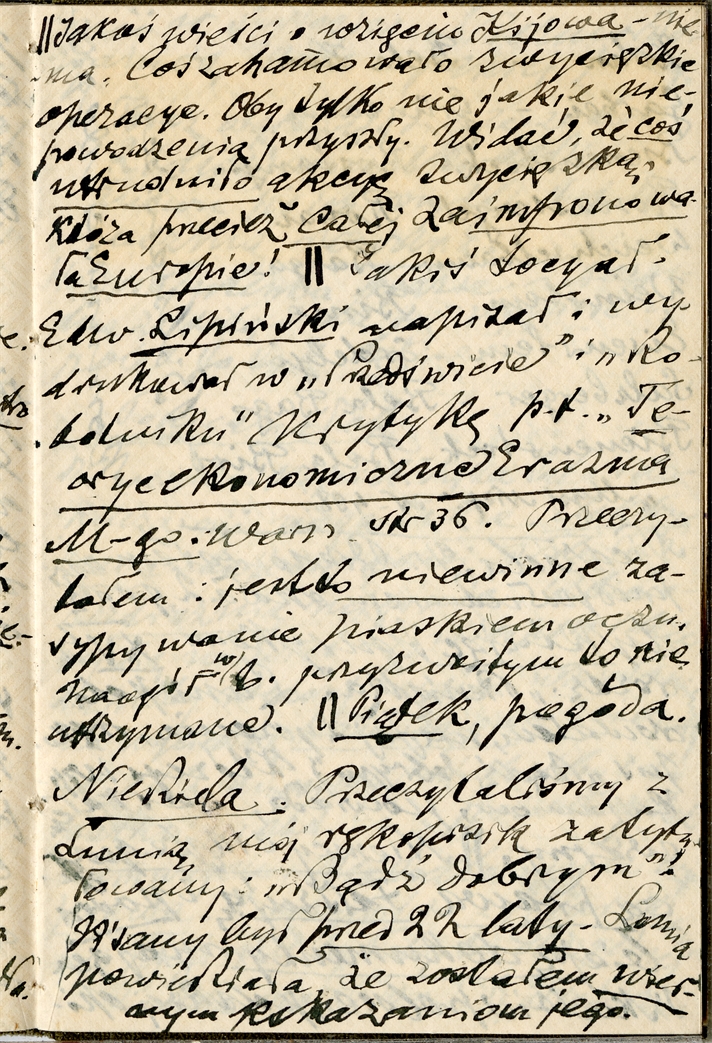 || Jakoś wieści o wzięciu Kijowa – nie-
ma. Coś zahamowało zwycięzkie
operacye. Oby tylko nie jakie nie-
powodzenia przyszły. Widać, że coś
utrudniło akcyę zwycięzką,
która przecież całej zaimponowa-
ła Europie! || Jakiś docyał-
Edw. Lipiński napisał i wy-
drukował w „Przedświcie” i „Ro-
botniku” Krytykę p.t. „Te-
orye ekonomiczne Erazma
M-go. Warsz. str 36. Przeczy-
tałem: jest to niewinne za-
sypywanie piaskiem oczu,
w b. przyzwoitym tonie
utrzymane. || Piątek, pogoda.
Niedziela. Przeczytaliśmy z
Lunią mój rękopisik zatytu-
łowany: „Bądź dobrym”!
Pisany był przed 22 laty – Lunia
powiedziała, że zostałem wier-
nym wskazaniom jego.